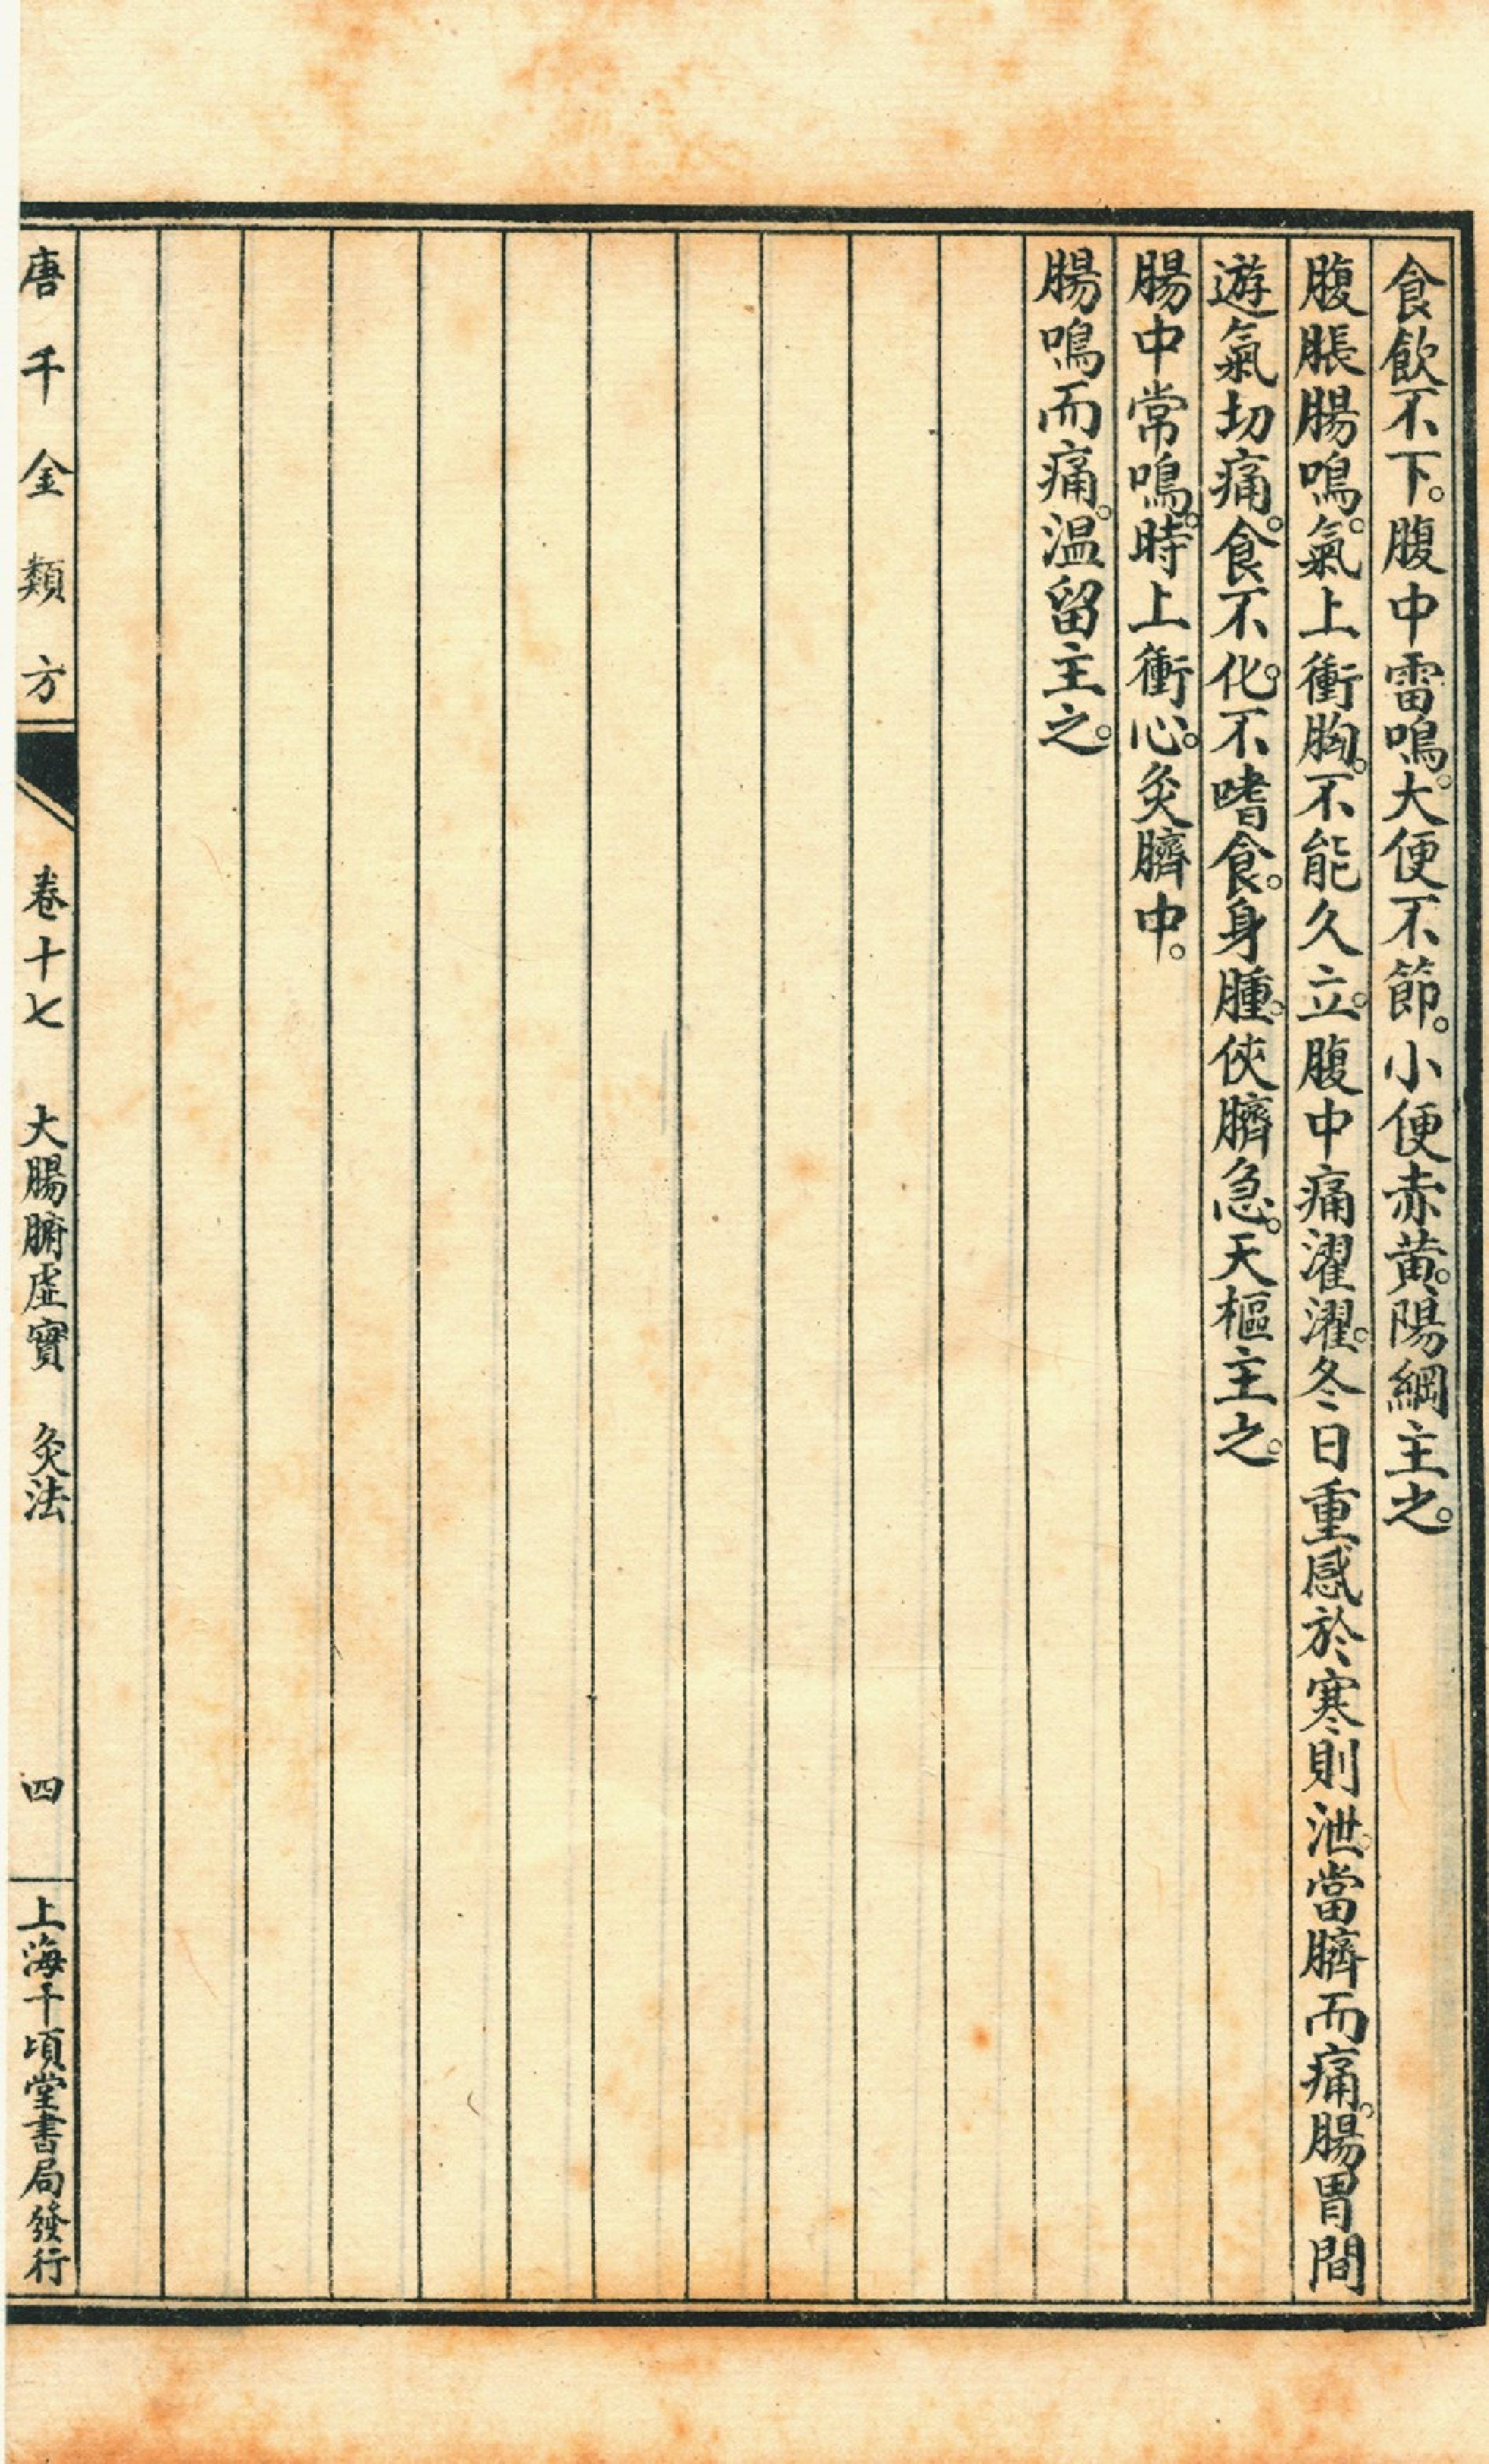 食飲不下。腹中雷鳴。大便不節。小便赤黄。陽綱主之。
腹脹腸鳴。氣上衝胸。不能久立。腹中痛濯濯。冬日重感於寒則泄。當臍而痛。腸胃間
遊氣切痛。食不化。不嗜食。身腫。俠臍急。天樞主之。
腸中常鳴。時上衝心。灸臍中。
腸鳴而痛。温留主之。
唐千金類方 卷十七 大腸腑虛實 灸法 四 上海千頃堂書局發行